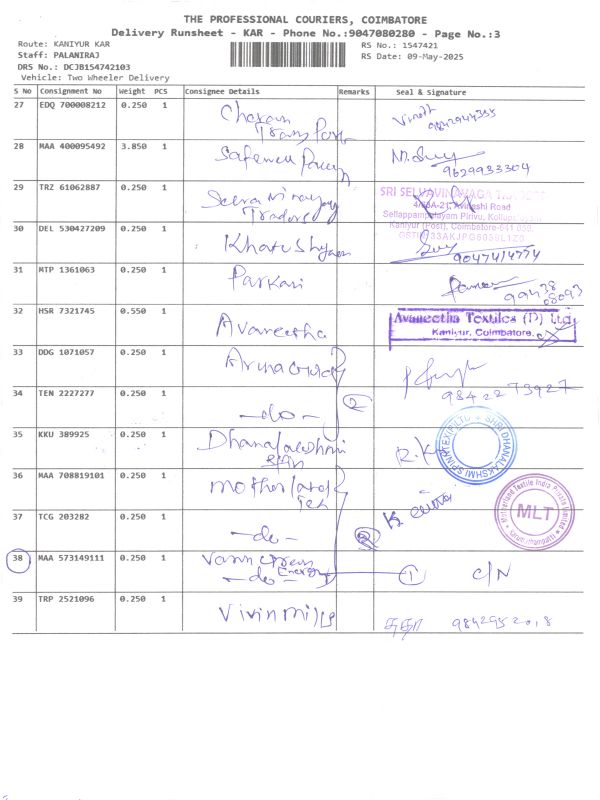 THE PROFESSIONAL COURIERS, COIMBATORE
Delivery Runsheet - KAR - Phone No.:9047080280 - Page No.:3
Route: KANIYUR KAR
RS No.: 1547421
Staff: PALANIRAJ
RS Date: 09-May-2025
DRS No.: DCJB154742103
Vehicle: Two Wheeler Delivery
S No Consignment No Weight PCS Consignee Details Remarks Seal & Signature
27 EDQ 700008212 0.250 1
28 MAA 400095492 3.850 1 9629933304
29 TRZ 61062887 0.250 1 Traders
SRI SELVAVINAYAGA
Avinashi Road
Sellappampalayam Pirivu,
Kaniyur (Post), Coimbatore-641 059.
30 DEL 530427209 0.250 1 9047414774
31 MTP 1361063 0.250 1 99438
08093
32 HSR 7321745 0.550 1 Avaneetha Avaneetha Textiles (P) Ltd.
Kaniyur, Coimbatore.
33 DDG 1071057 0.250 1
34 TEN 2227277 0.250 1 -do- 2 98422 73927
35 KKU 389925 0.250 1 Dhanalakshmi
SHRI DHANALAKSHMI SPINTEX (P) LTD
36 MAA 708819101 0.250 1 Motherland
Tex
37 TCG 203282 0.250 1 -do- 2
Motherland Textile India Private Limited
MLT
38 MAA 573149111 0.250 1 Green Energy
-do- 1 C/N
39 TRP 2521096 0.250 1 Vivin Mills 984295 2018